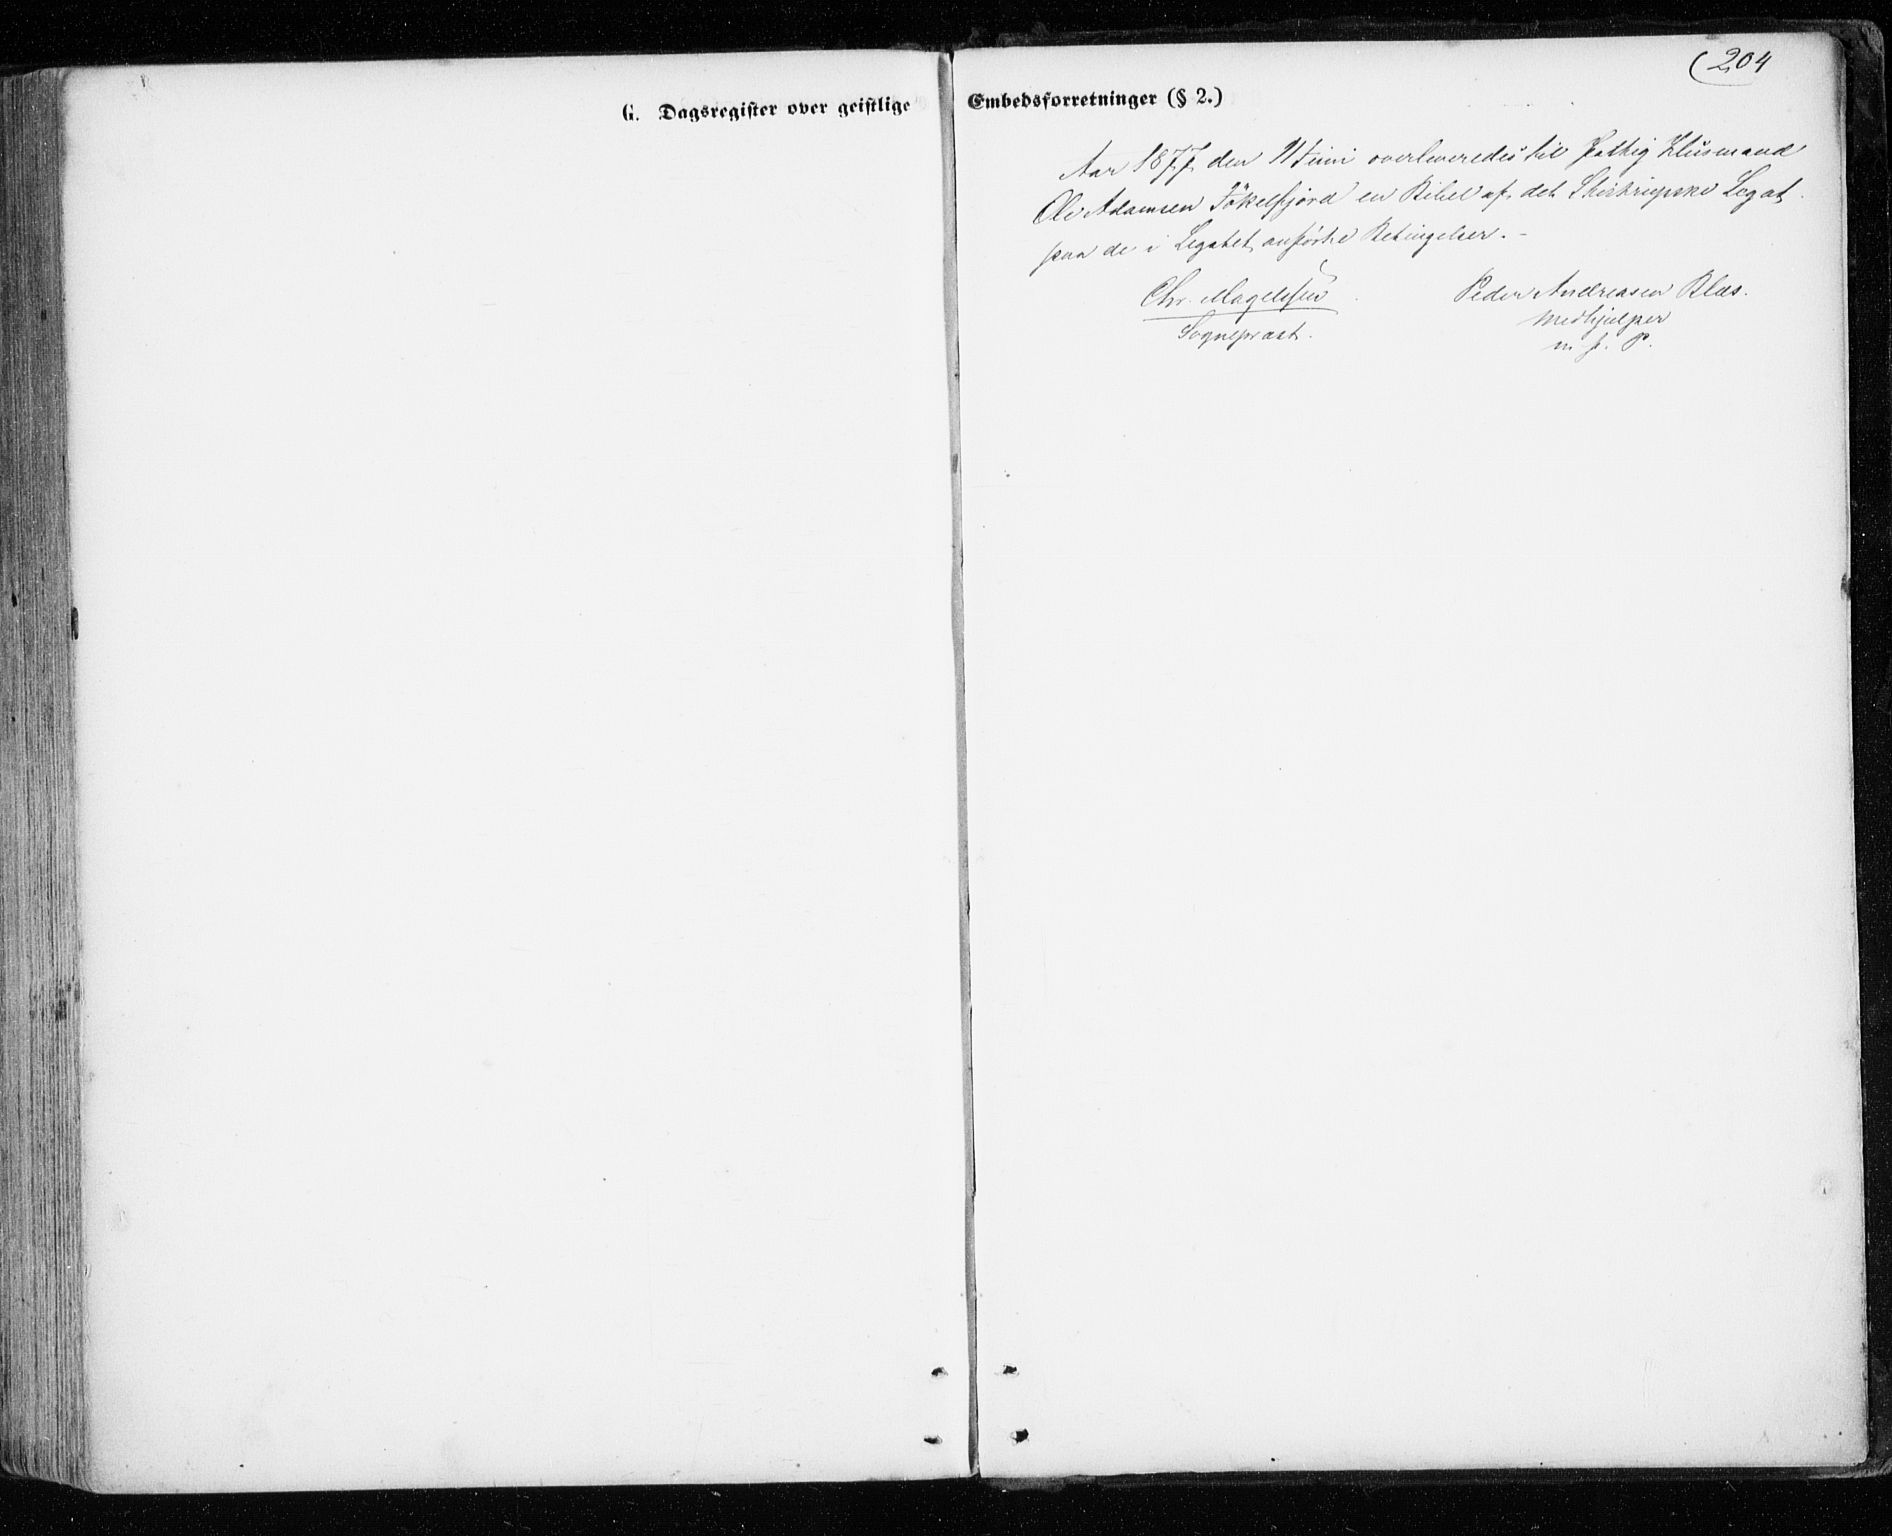 204
G. Dagsregister over geistlige Embedsforretninger (§ 2.)
Aar 1877 den 11 Juni overleveredes til Fattig Husmand
Ole Adamsen Jökelfjord en Bibel af det Legat
paa de i Legatet anførte Betingelser. -
Chr. Magelssen
Sognepræst.
Peder Andreasen Blæs.
Medhjælper
m. f. P.